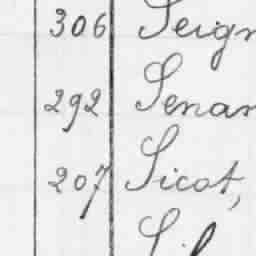 306 Seign
292 Senan
207 Sicot,